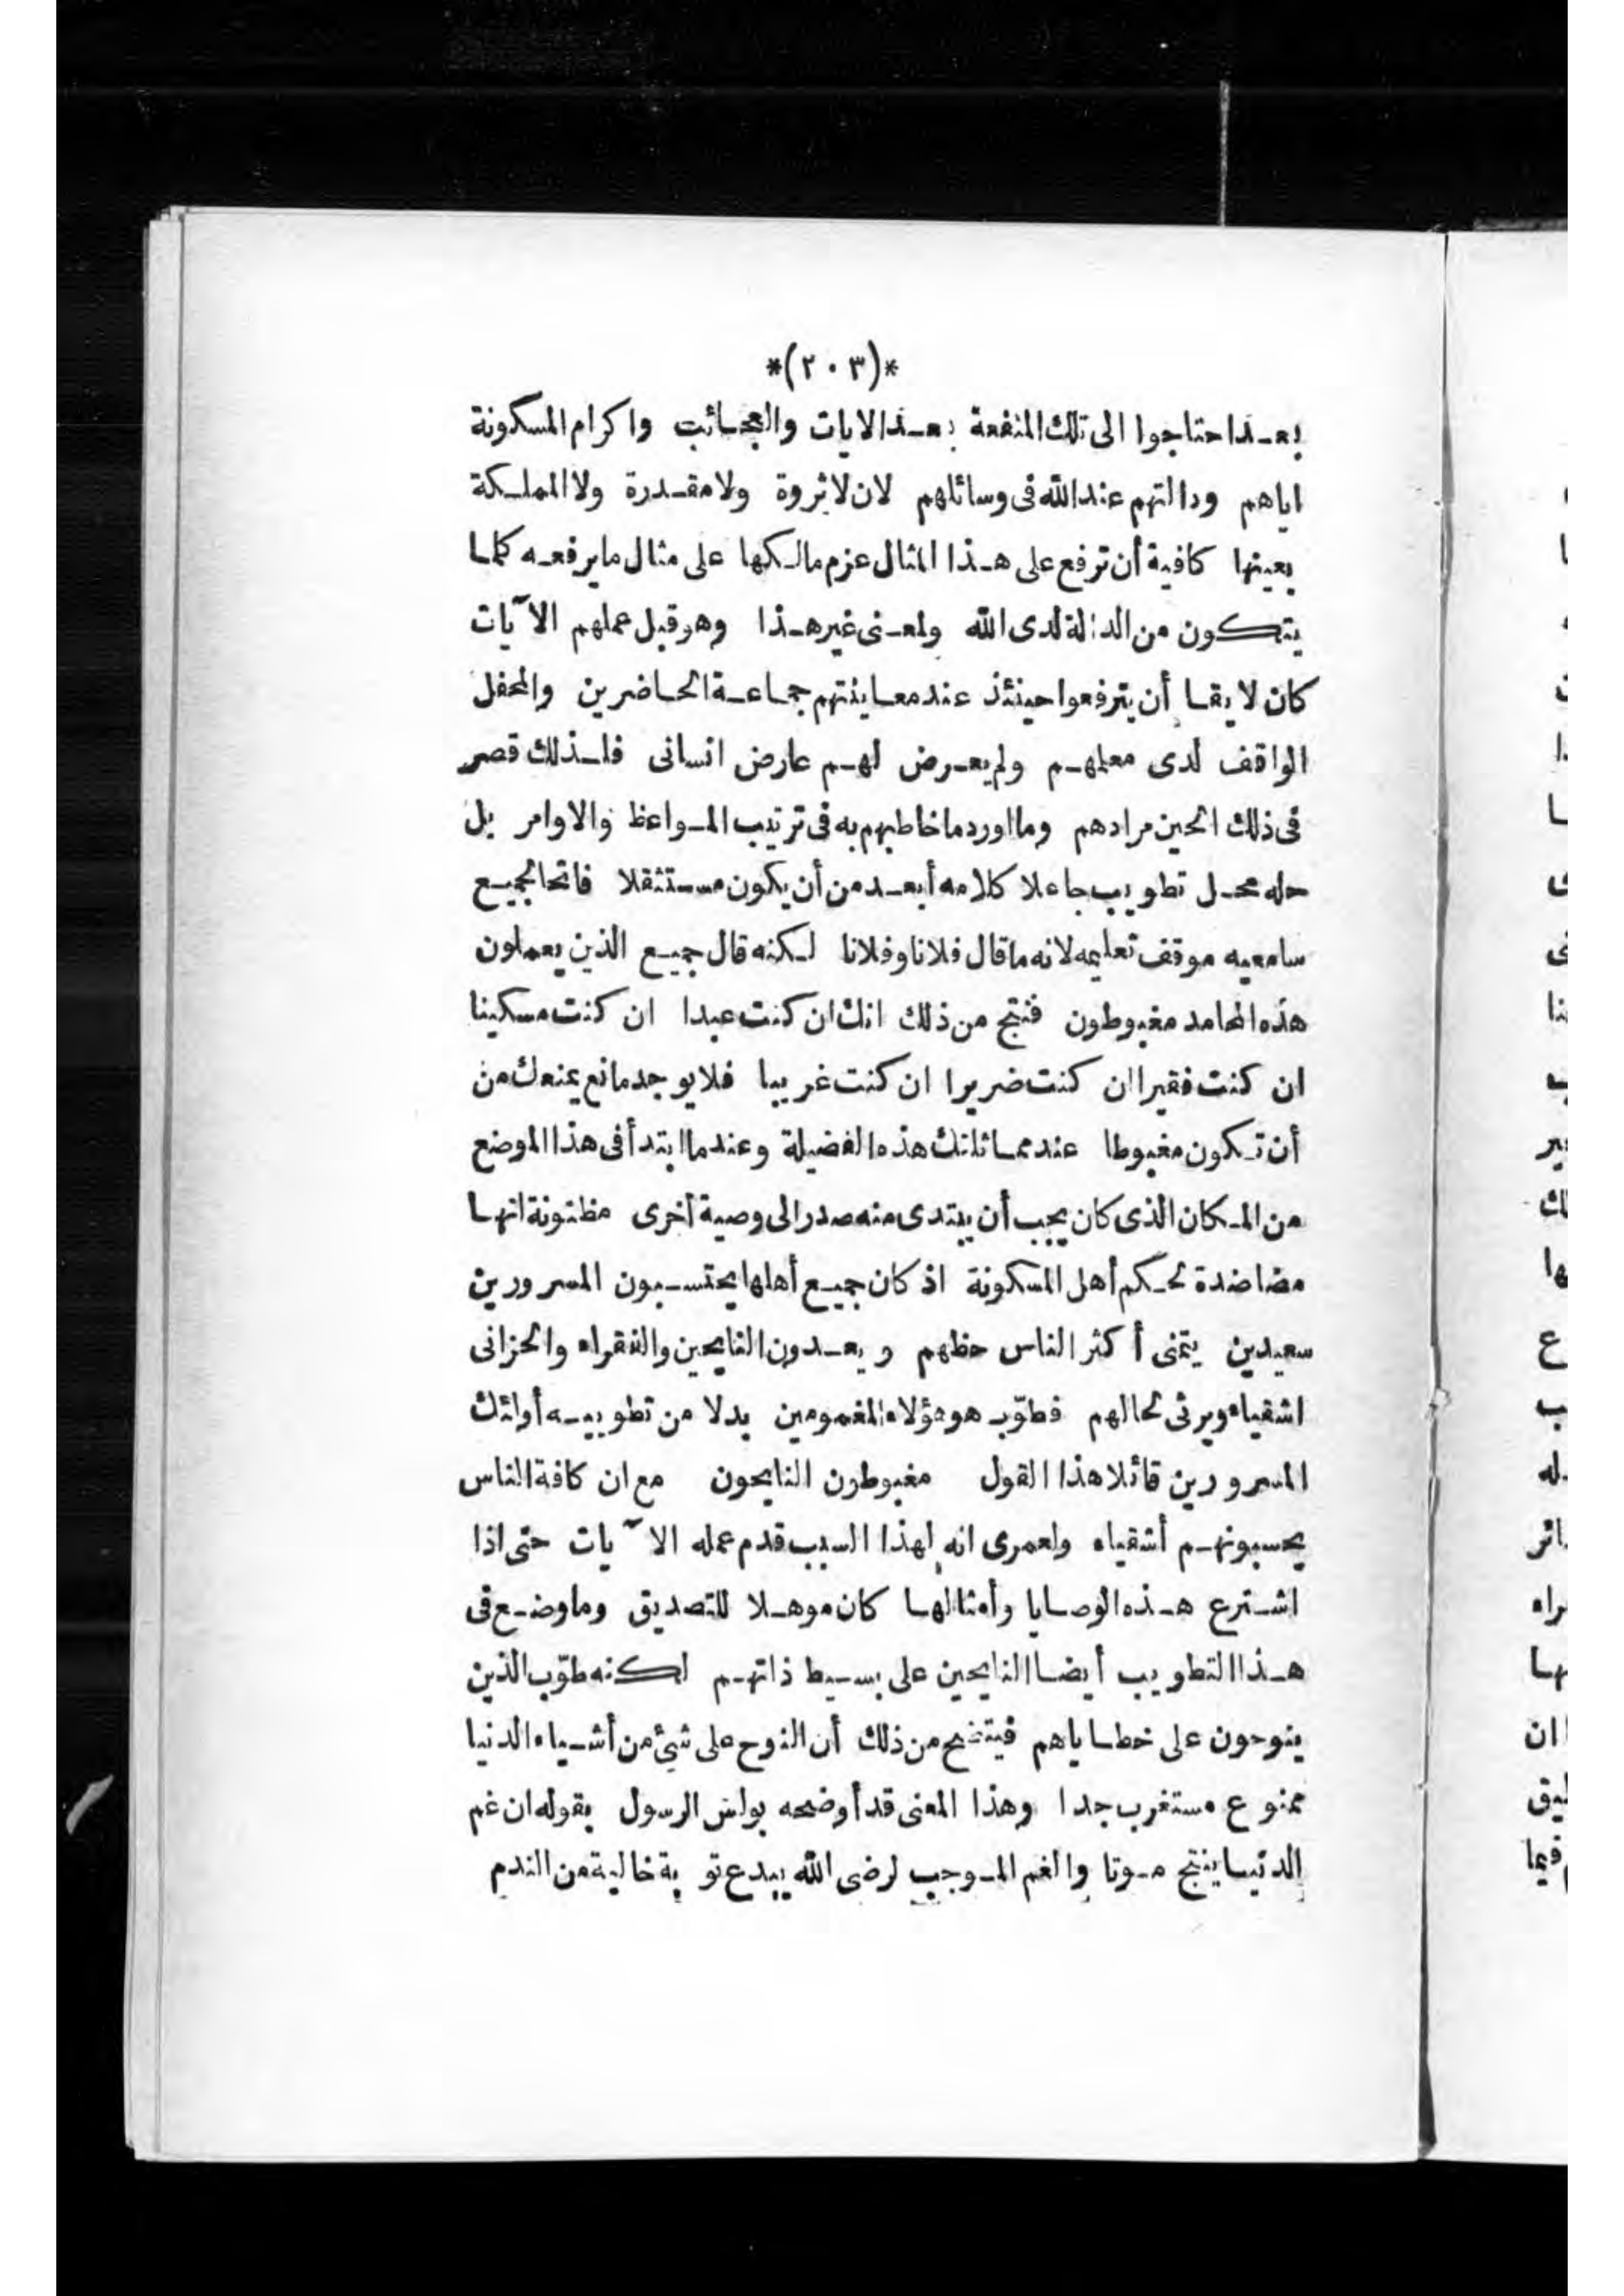 *(٢٠٣)*
بعد احتاجوا الى تلك المنفعة بعد الايات والعجائب واكرام المسكونة
اياهم ودالتهم عند الله فى وسائلهم لان لا ثروة ولا مقدرة ولا المملكة
بعينها كافية أن ترفع على هذا المثال عزم مالكها على مثال ما يرفعه كلما
يتكون من الدالة لدى الله ولمعنى غير هذا وهو قبل عملهم الآيات
كان لايقا أن يترفعوا حينئذ عند معاينتهم جماعة الحاضرين والمحفل
الواقف لدى معلمهم ولم يعرض لهم عارض انسانى فلذلك قصر
فى ذلك الحين مرادهم وما اورد ما خاطبهم به فى ترتيب المواعظ والاوامر بل
حله محل تطويب جاعلا كلامه أبعد من أن يكون مستثقلا فاتحا لجميع
سامعيه موقف تعليمه لانه ما قال فلانا وفلانا لكنه قال جميع الذين يعملون
هذه المحامد مغبوطون فنتج من ذلك انك ان كنت عبدا ان كنت مسكينا
ان كنت فقيرا ان كنت ضريرا ان كنت غريبا فلا يوجد مانع يمنعك من
أن تكون مغبوطا عند مماثلتك هذه الفضيلة وعندما ابتدأ فى هذا الموضع
من المكان الذى كان يجب أن يبتدى منه صدر الى وصية أخرى مظنونة انها
مضاضدة لحكم أهل المسكونة اذ كان جميع أهلها يحتسبون المسرورين
سعيدين يتمنى أكثر الناس حظهم ويعدون النايحين والفقراء والحزانى
اشقياء ويرثى لحالهم فطوّب هو هؤلاء المغمومين بدلا من تطويبه أولئك
المسرورين قائلا هذا القول مغبوطون النايحون مع ان كافة الناس
يحسبونهم أشقياء ولعمرى انه لهذا السبب قدم عمله الآيات حتى اذا
اشترع هذه الوصايا وأمثالها كان موهلا للتصديق وما وضع فى
هذا التطويب أيضا النايحين على بسيط ذاتهم لكنه طوّب الذين
ينوحون على خطاياهم فيتضح من ذلك أن النوح على شئ من أشياء الدنيا
ممنوع مستغرب جدا وهذا المعنى قد أوضحه بولس الرسول بقوله ان غم
الدنيا ينتج موتا والغم الموجب لرضى الله يبدع توبة خالية من الندم